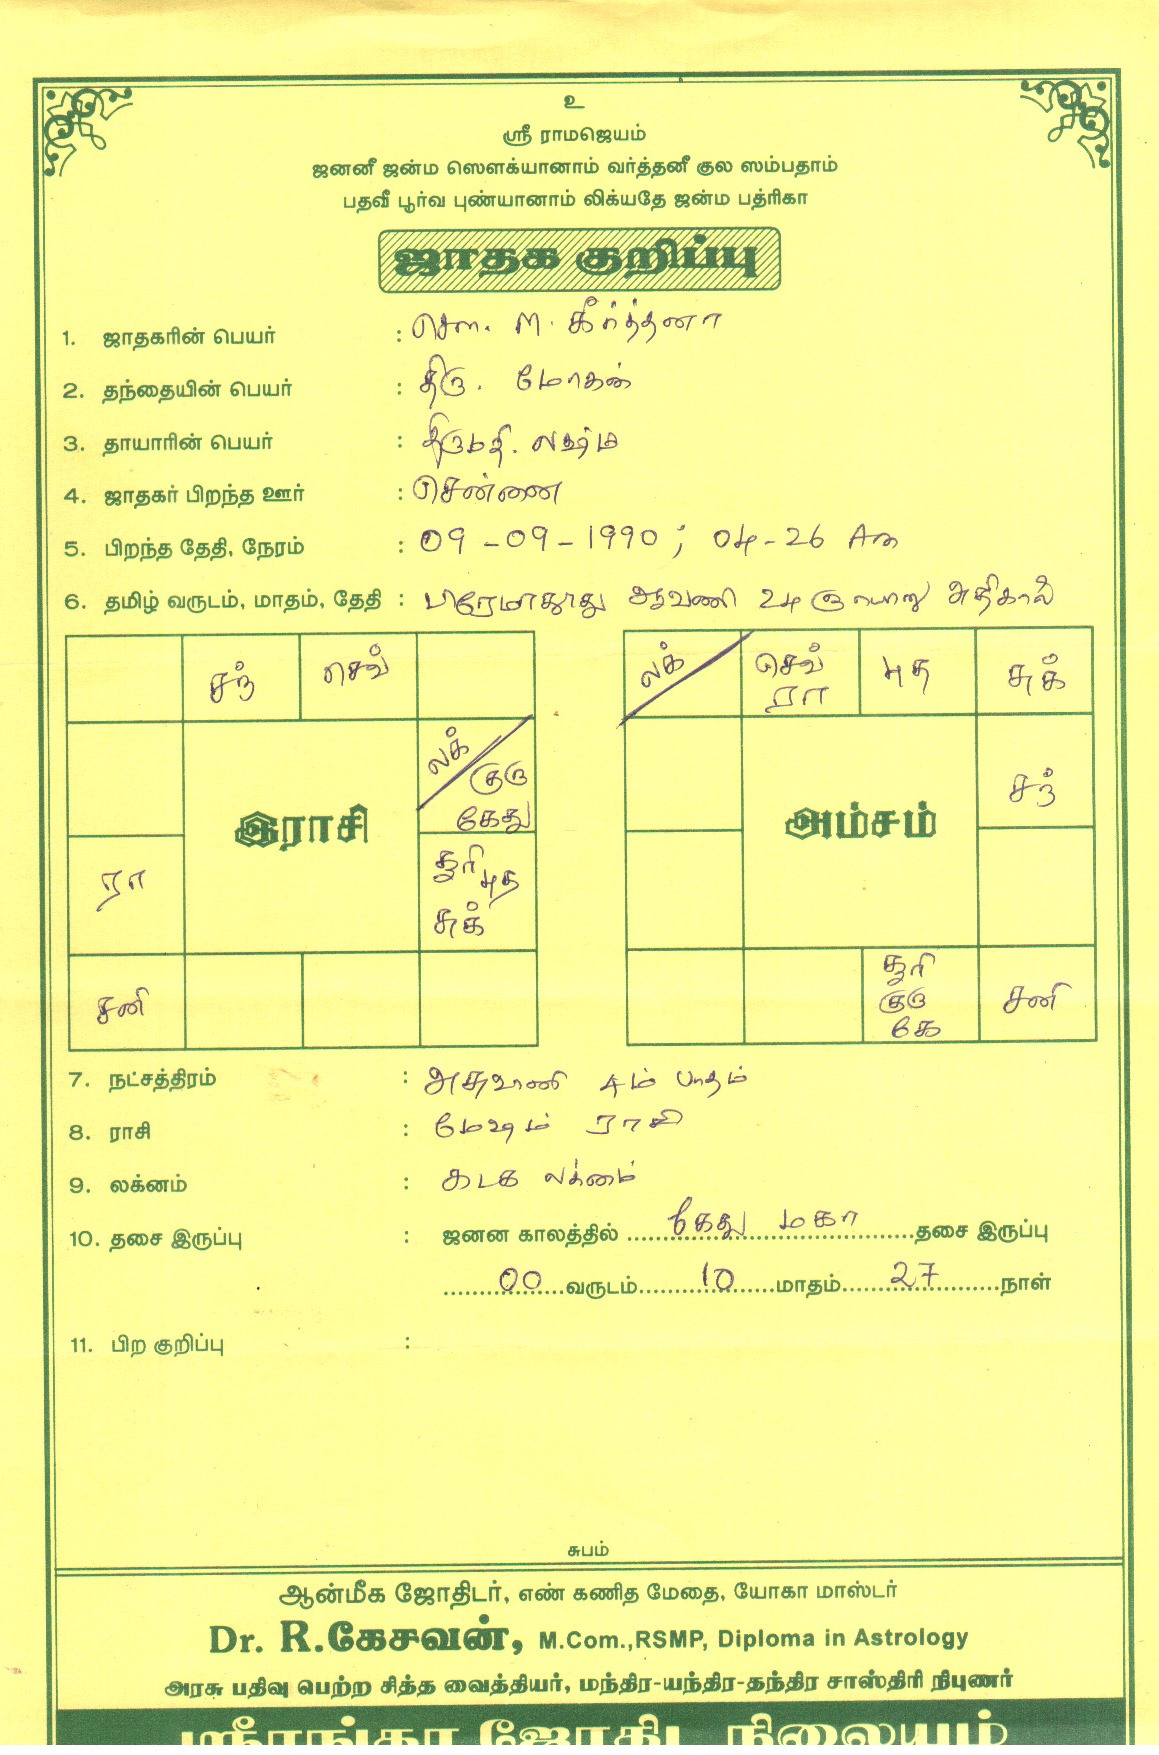 உ
ஸ்ரீ ராமஜெயம்
ஜனனீ ஜன்ம ஸௌக்யானாம் வர்த்தனீ குல ஸம்பதாம்
பதவீ பூர்வ புண்யானாம் லிக்யதே ஜன்ம பத்ரிகா
ஜாதக குறிப்பு
1. ஜாதகரின் பெயர் : சௌ. M. கீர்த்தனா
2. தந்தையின் பெயர் : திரு. மோகன்
3. தாயாரின் பெயர் : திருமதி. லஷ்மி
4. ஜாதகர் பிறந்த ஊர் : சென்னை
5. பிறந்த தேதி, நேரம் : 09-09-1990 ; 04-26 Am
6. தமிழ் வருடம், மாதம், தேதி : பிரமோதூத ஆவணி 24 ஞாயிறு அதிகாலை
சந் செவ்
லக் குரு கேது
இராசி
ரா
சூரி புத சுக்
சனி
லக் செவ் ரா புத சுக்
சந்
அம்சம்
சூரி குரு கே சனி
7. நட்சத்திரம் : அசுவணி 4ம் பாதம்
8. ராசி : மேஷம் ராசி
9. லக்னம் : கடக லக்னம்
10. தசை இருப்பு : ஜனன காலத்தில் கேது மகா தசை இருப்பு
00 வருடம் 10 மாதம் 27 நாள்
11. பிற குறிப்பு :
சுபம்
ஆன்மீக ஜோதிடர், எண் கணித மேதை, யோகா மாஸ்டர்
Dr. R.கேசவன், M.Com.,RSMP, Diploma in Astrology
அரசு பதிவு பெற்ற சித்த வைத்தியர், மந்திர-யந்திர-தந்திர சாஸ்திரி நிபுணர்
ஸ்ரீரங்கா ஜோதிட நிலையம்